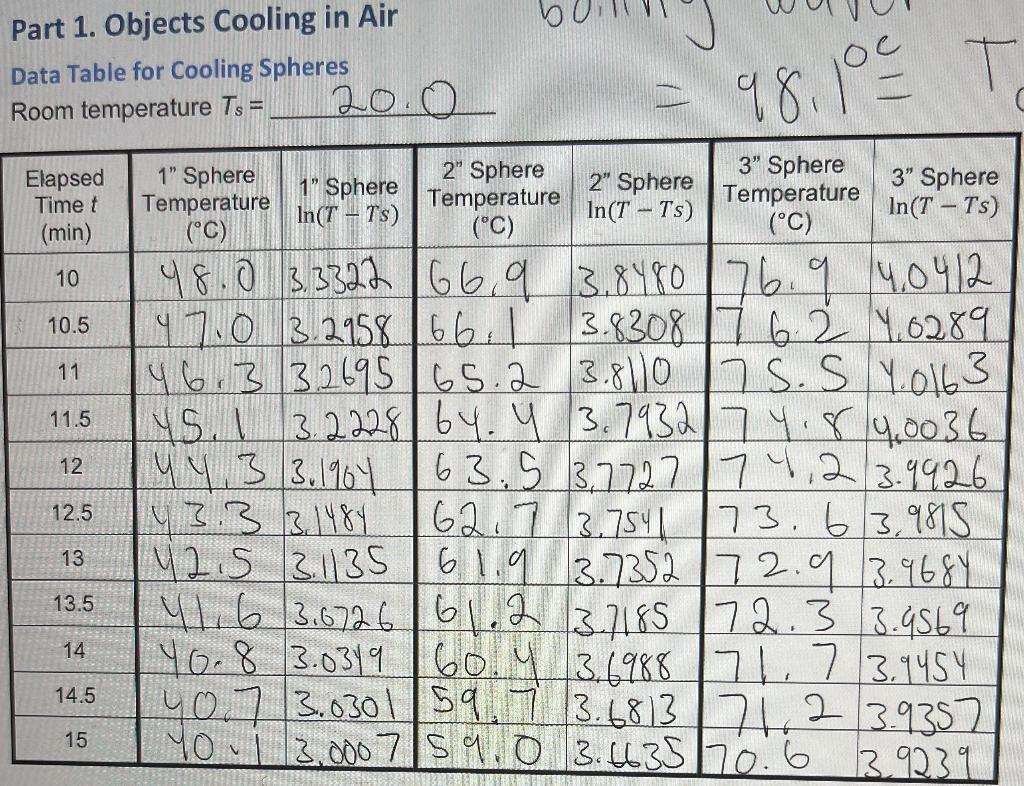 Part 1. Objects Cooling in Air
Data Table for Cooling Spheres
Room temperature Ts = 20.0
= 98.1°C =
Elapsed Time t (min) 1" Sphere Temperature (°C) 1" Sphere ln(T – Ts) 2" Sphere Temperature (°C) 2" Sphere ln(T – Ts) 3" Sphere Temperature (°C) 3" Sphere ln(T – Ts)
10 48.0 3.3322 66.9 3.8480 76.9 4.0412
10.5 47.0 3.2958 66.1 3.8308 76.2 4.0289
11 46.3 3.2695 65.2 3.8110 75.5 4.0163
11.5 45.1 3.2228 64.4 3.7932 74.8 4.0036
12 44.3 3.1904 63.5 3.7727 74.2 3.9926
12.5 43.3 3.1484 62.7 3.7541 73.6 3.9815
13 42.5 3.1135 61.9 3.7352 72.9 3.9684
13.5 41.6 3.0726 61.2 3.7185 72.3 3.9569
14 40.8 3.0349 60.4 3.6988 71.7 3.9454
14.5 40.7 3.0301 59.7 3.6813 71.2 3.9357
15 40.1 3.0007 59.0 3.6635 70.6 3.9239